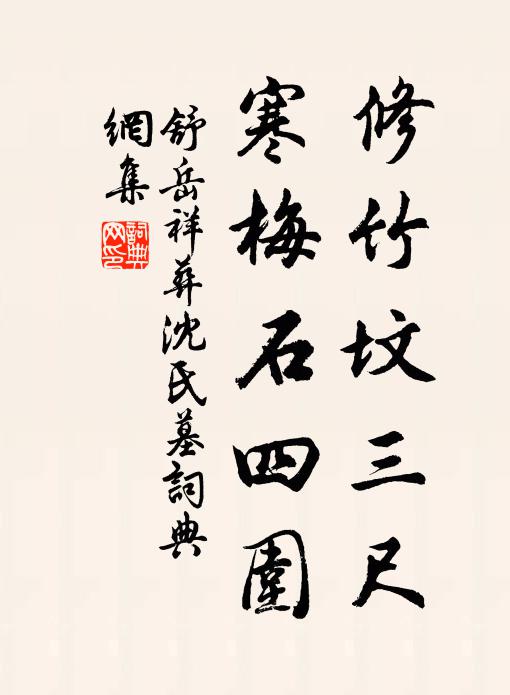 修竹坟三尺
寒梅石四圍
舒岳祥葬沈氏墓詞典
網集
詞典
网印